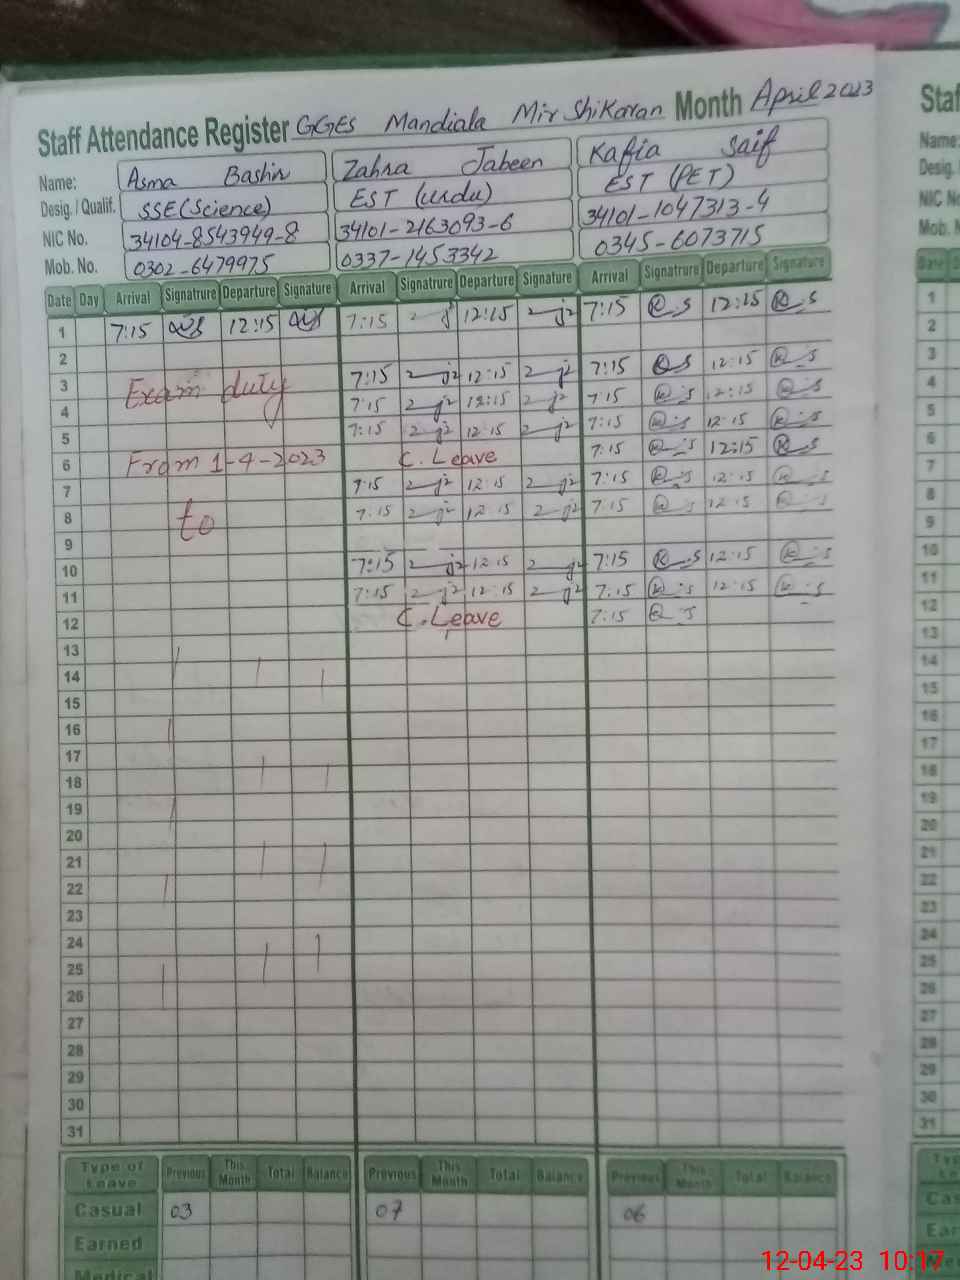 Staff Attendance Register GGES Mandiala Mir Shikaran Month April 2023
Name: Asma Bashir Zahra Jabeen Kafia Saif
Desig. / Qualif. SSE (Science) EST (Urdu) EST (PET)
NIC No. 34104-8543949-8 34101-2163093-6 34101-1047313-4
Mob. No. 0302-6479975 0337-1453342 0345-6073715
Date Day Arrival Signatrure Departure Signature Arrival Signatrure Departure Signature Arrival Signatrure Departure Signature
1 7:15 12:15 7:15 12:15 7:15 12:15
2
3 Exam duty 7:15 12:15 7:15 12:15
4 7:15 12:15 7:15 12:15
5 7:15 12:15 7:15 12:15
6 From 1-4-2023 C. Leave 7:15 12:15
7 7:15 12:15 7:15 12:15
8 to 7:15 12:15 7:15 12:15
9
10 7:15 12:15 7:15 12:15
11 7:15 12:15 7:15 12:15
12 C. Leave 7:15
13
14
15
16
17
18
19
20
21
22
23
24
25
26
27
28
29
30
31
Type of Leave Previous This Month Total Balance Previous This Month Total Balance Previous This Month Total Balance
Casual 03 07 06
Earned
Medical
Staf
Name:
Desig.
NIC No
Mob. N
Date
1
2
3
4
5
6
7
8
9
10
11
12
13
14
15
16
17
18
19
20
21
22
23
24
25
26
27
28
29
30
31
12-04-23 10:17